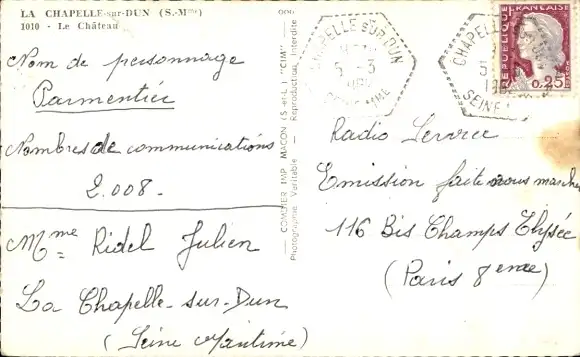 LA CHAPELLE-sur-DUN (S.-Mme)
1010 - Le Château
Nom de personnage
Parmentier
Nombres de communications
2.008.
Mme Ridel Julien
La Chapelle-sur-Dun
(Seine Maritime)
COMBIER IMP. MACON (S.-et-L.) "CIM"
Photographie Véritable - Reproduction Interdite
CHAPELLE SUR DUN
5 - 3
CHAPELLE
5
SEINE
REPUBLIQUE FRANÇAISE
0,25
Radio Service
Emission faite nous marcher
116 Bis Champs Elysée
(Paris 8eme)